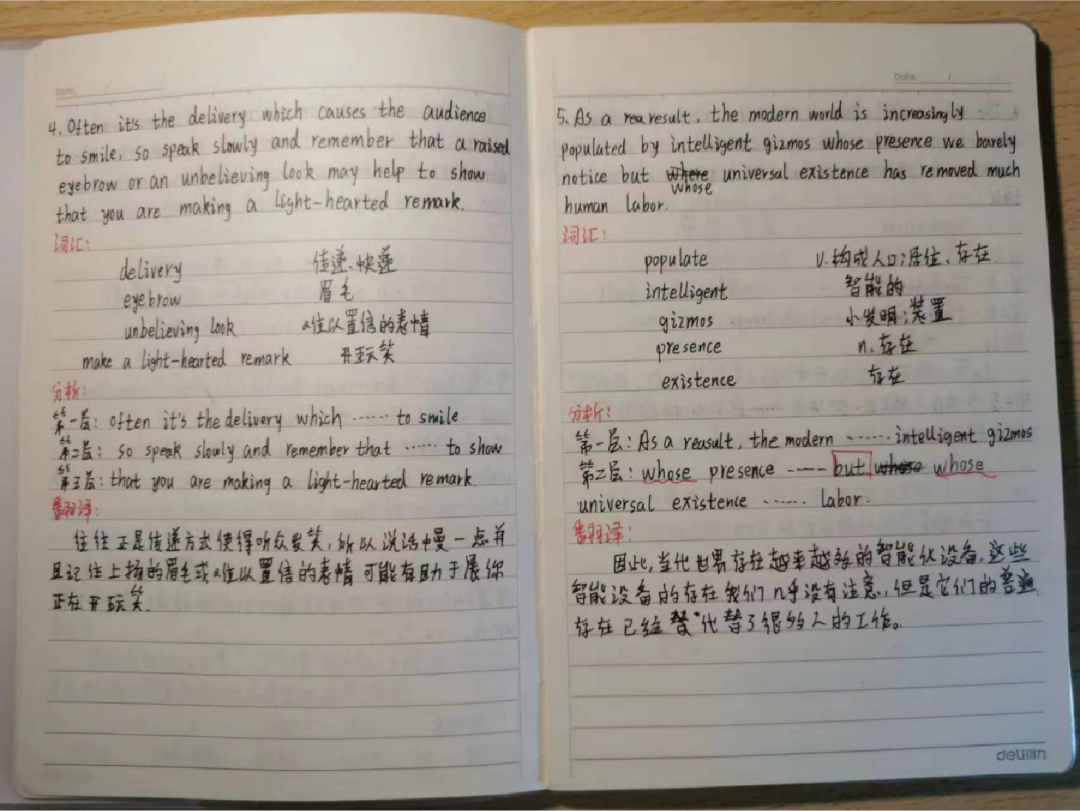 Date. /
4. Often it's the delivery which causes the audience
to smile, so speak slowly and remember that a raised
eyebrow or an unbelieving look may help to show
that you are making a light-hearted remark.
词汇:
delivery 传递、快递
eyebrow 眉毛
unbelieving look 难以置信的表情
make a light-hearted remark 开玩笑
分析:
第一层: often it's the delivery which …… to smile
第二层: so speak slowly and remember that …… to show
第三层: that you are making a light-hearted remark.
翻译:
往往正是传递方式使得听众发笑,所以说话中慢一点并
且记住上扬的眉毛或难以置信的表情可能有助于展你
正在开玩笑.
Date. /
5. As a rea result, the modern world is increasingly
populated by intelligent gizmos whose presence we barely
notice but where universal existence has removed much
whose
human labor.
词汇:
populate v.构成人口;居住、存在
intelligent 智能的
gizmos 小发明;装置
presence n.存在
existence 存在
分析:
第一层: As a reasult, the modern …… intelligent gizmos
第二层: whose presence …… but whose whose
universal existence …… labor.
翻译:
因此,当代世界存在越来越多的智能化设备,这些
智能设备的存在我们几乎没有注意,但是它们的普遍
存在已经替代替了很多人的工作。
deli 得力